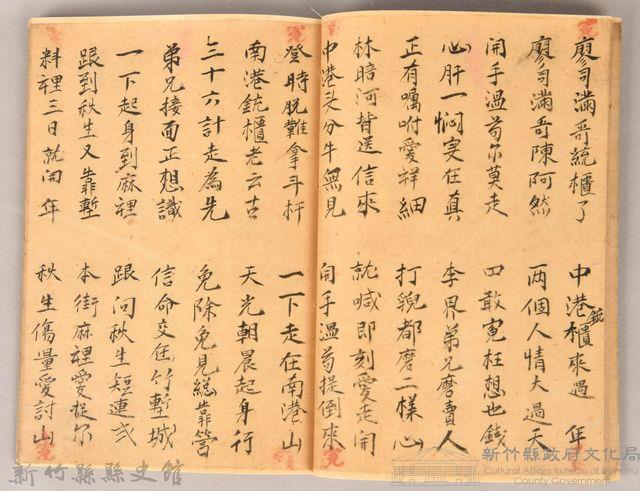 廖司滿哥統櫃了
中港銃櫃來過年
廖司滿哥陳阿然
兩個人情大過天
開手溫苟尔莫走
四敢冤枉想也錢
心肝一悶实在真
李界弟兄磨賣人
正有嘱咐愛祥細
打貎都磨二樣心
林暗河背送信來
就喊即刻愛走開
中港头分牛無見
開手溫苟捉倒來
登時脱難拿斗杆
一下走在南港山
南港銃櫃老云古
天光朝晨起身行
三十六計走為先
免除免見総靠營
弟兄接面正想識
信命交在竹塹城
一下起身到麻裡
跟问秋生短連弍
跟到秋生又靠塹
本街麻裡愛根尔
料裡三日就開年
秋生傷量愛討山
新竹縣縣史館
新竹縣政府文化局
Cultural Affairs Bureau of Hsinchu County Government